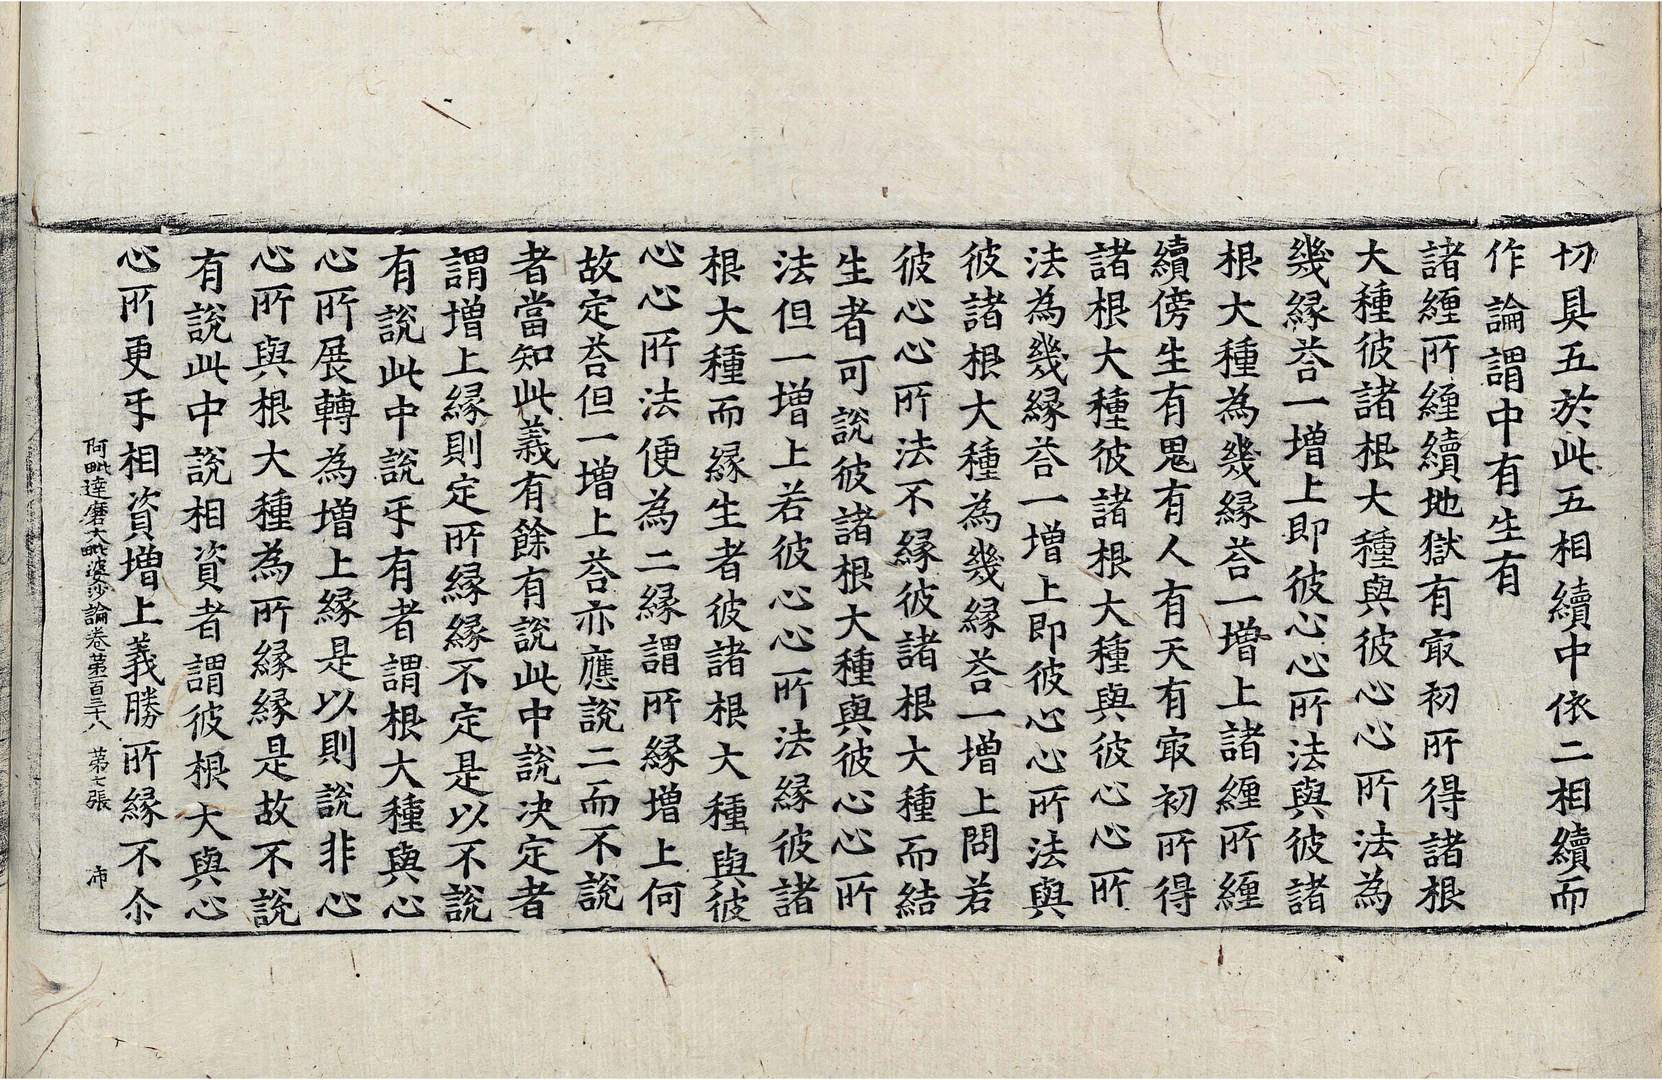 切具五於此五相續中依二相續而
作論謂中有生有
諸纏所纏續地獄有㝡初所得諸根
大種彼諸根大種與彼心心所法為
幾緣荅一增上即彼心心所法與彼諸
根大種為幾緣荅一增上諸纏所纏
續傍生有鬼有人有天有㝡初所得
諸根大種彼諸根大種與彼心心所
法為幾緣荅一增上即彼心心所法與
彼諸根大種為幾緣荅一增上問若
彼心心所法不緣彼諸根大種而結
生者可說彼諸根大種與彼心心所
法但一增上若彼心心所法緣彼諸
根大種而緣生者彼諸根大種與彼
心心所法便為二緣謂所緣增上何
故定荅但一增上荅亦應說二而不說
者當知此義有餘有說此中說決定者
謂增上緣則定所緣緣不定是以不說
有說此中說㸦有者謂根大種與心
心所展轉為增上緣是以則說非心
心所與根大種為所緣緣是故不說
有說此中說相資者謂彼根大與心
心所更㸦相資增上義勝所緣不尒
阿毗達磨大毗婆沙論卷第一百三十八 第七張 沛